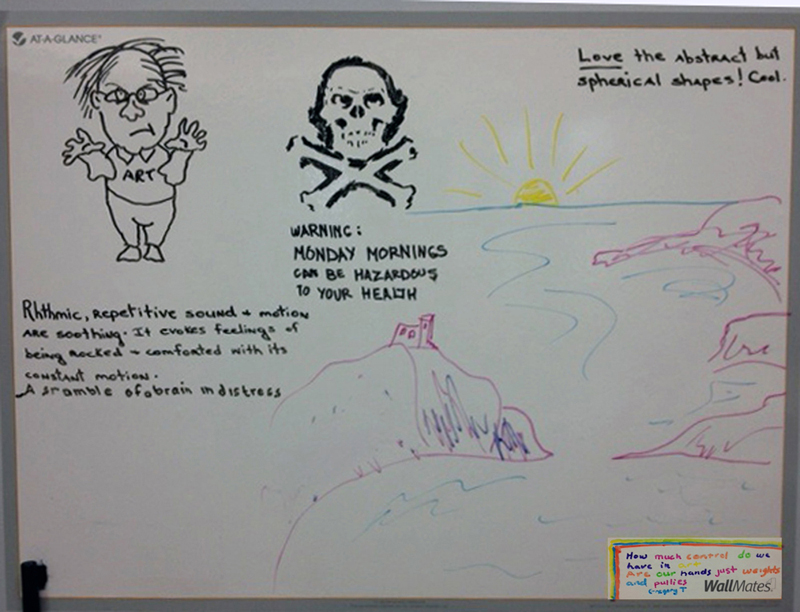 AT-A-GLANCE®
Love the abstract but
spherical shapes! Cool.
ART
WARNING:
MONDAY MORNINGS
CAN BE HAZARDOUS
TO YOUR HEALTH
Rhthmic, repetitive sound + motion
are soothing. It evokes feelings of
being rocked + comforted with its
constant motion.
A sramble of a brain in distress
How much control do we
have in art
Are our hands just weights
and pullies
Gregory T
WallMates